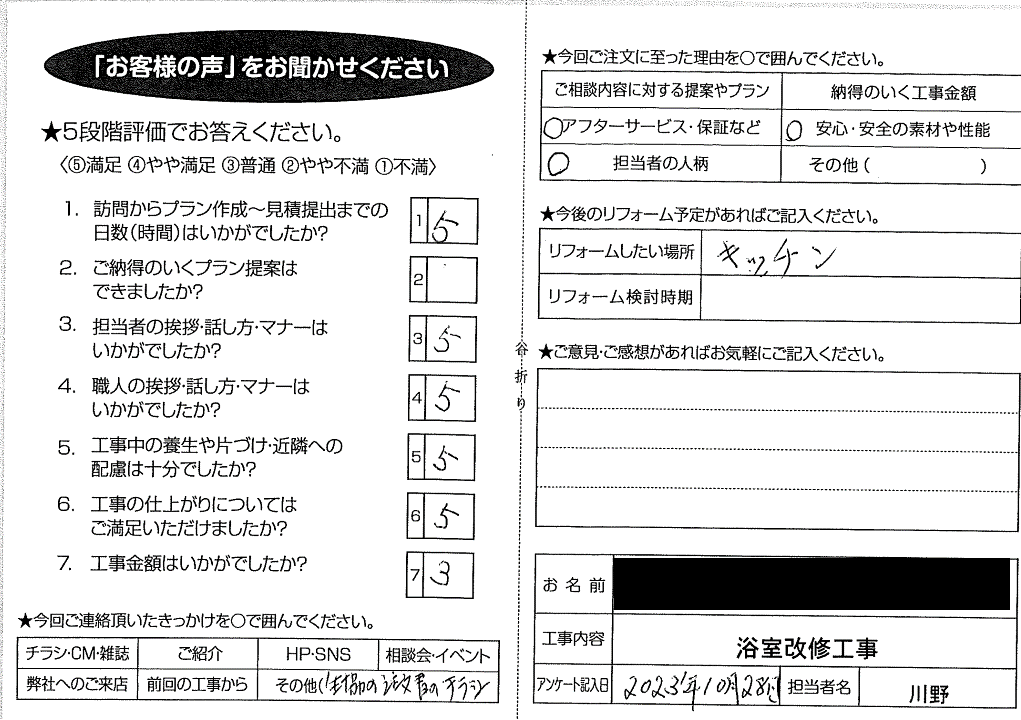 「お客様の声」をお聞かせください
★5段階評価でお答えください。
〈⑤満足 ④やや満足 ③普通 ②やや不満 ①不満〉
1. 訪問からプラン作成～見積提出までの
日数(時間)はいかがでしたか?
1 5
2. ご納得のいくプラン提案は
できましたか?
2
3. 担当者の挨拶・話し方・マナーは
いかがでしたか?
3 5
4. 職人の挨拶・話し方・マナーは
いかがでしたか?
4 5
5. 工事中の養生や片づけ・近隣への
配慮は十分でしたか?
5 5
6. 工事の仕上がりについては
ご満足いただけましたか?
6 5
7. 工事金額はいかがでしたか?
7 3
★今回ご連絡頂いたきっかけを○で囲んでください。
チラシ・CM・雑誌 ご紹介 HP・SNS 相談会・イベント
弊社へのご来店 前回の工事から その他( の チラシ
谷折り
★今回ご注文に至った理由を○で囲んでください。
ご相談内容に対する提案やプラン 納得のいく工事金額
○アフターサービス・保証など ○ 安心・安全の素材や性能
○ 担当者の人柄 その他( )
★今後のリフォーム予定があればご記入ください。
リフォームしたい場所 キッチン
リフォーム検討時期
★ご意見・ご感想があればお気軽にご記入ください。
お名前
工事内容 浴室改修工事
アンケート記入日 2023年10月28日 担当者名 川野